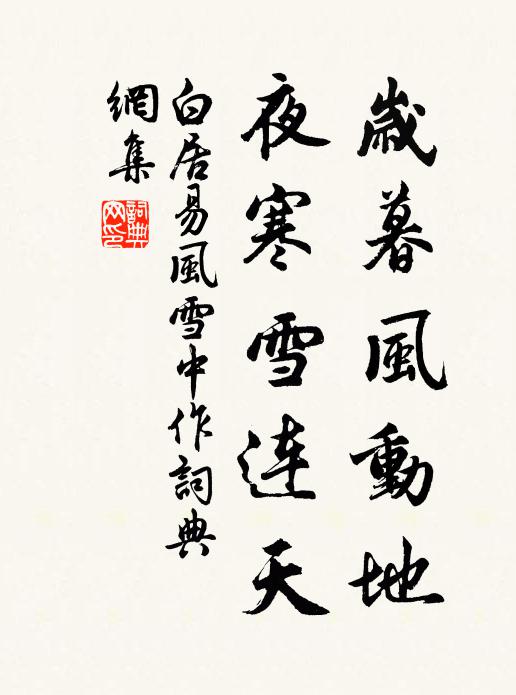 歲暮風動地
夜寒雪連天
白居易風雪中作詞典
網集
詞典網印